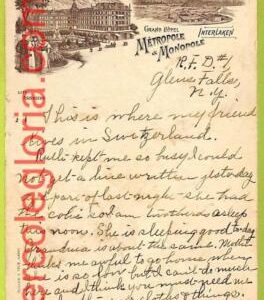 GRAND HOTEL
METROPOLE & MONOPOLE
INTERLAKEN
R.F.D. #1
Glens Falls,
N.Y.
This is where my friend
lives in Switzerland.
kept me so busy I could
not get a line written yesterday
part of last night she had
the colic so I am
noon. She is sleeping good to day
is about the same.
me awful to go home when
is so low but I can't do much
here and think you must need me
things.
egloria.com